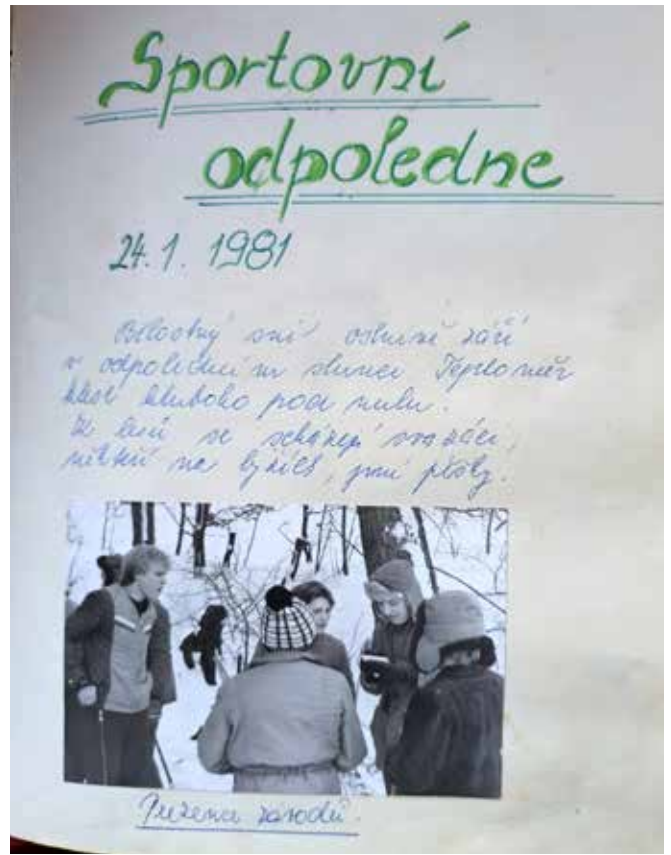 Sportovní
odpoledne
24. 1. 1981
Bělostný sníh oslnivě září
v odpoledním slunci Teploměr
klesl hluboko pod nulu.
U lesa se scházejí svazáci,
někteří na lyžích, jiní pěšky.
Prezence závodů.